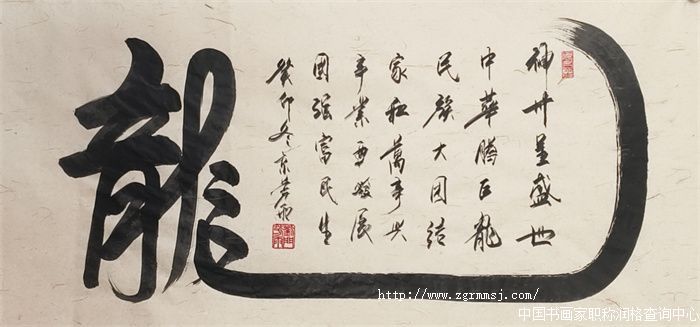 神州呈盛世
中華腾巨龍
民族大团结
家和萬事兴
事業展
國强富民生
癸卯冬京
龍
http://www.zgrmmsj.com/
中国书画家职称润格查询中心